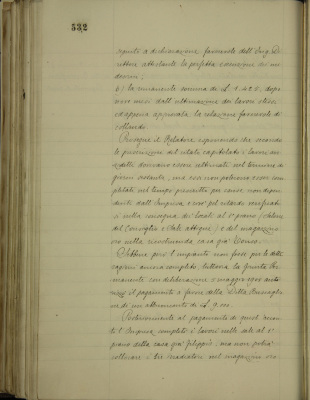 532
seguito a dichiarazione favorevole dell'Ing. Di-
rettore attestante la perfetta esecuzione dei me-
desimi;
b) la rimanente somma di £. 1.425, dopo
nove mesi dall'ultimazione dei lavori stessi
ed appena approvata la relazione favorevole di
collaudo.
Prosegue il Relatore esponendo che secondo
le prescrizioni del citato capitolato i lavori an-
zidetti dovevano essere ultimati nel termine di
giorni ottanta, ma essi non poterono essere com-
pletati nel tempo prescritto per cause non dipen-
denti dall'Impresa e cioè pel ritardo verificato-
si nella consegna dei locali al 1° piano (
del Consiglio e Sale attigue) e del magazzino
sito nella rinnovanda casa già
Sebbene però l'impianto non fosse per le dette
cagioni ancora completo, tuttavia la Giunta Per-
manente con deliberazione 2 maggio 1900 auto-
rizzò il pagamento a favore della Ditta
ne di un abbuonamento di £. 9.000.
Posteriormente al pagamento di quest'accon-
to l'Impresa completò i lavori nelle sale al 1°
piano della casa già Filippi, ma non poté
collocare i tre radiatori nel magazzino sito